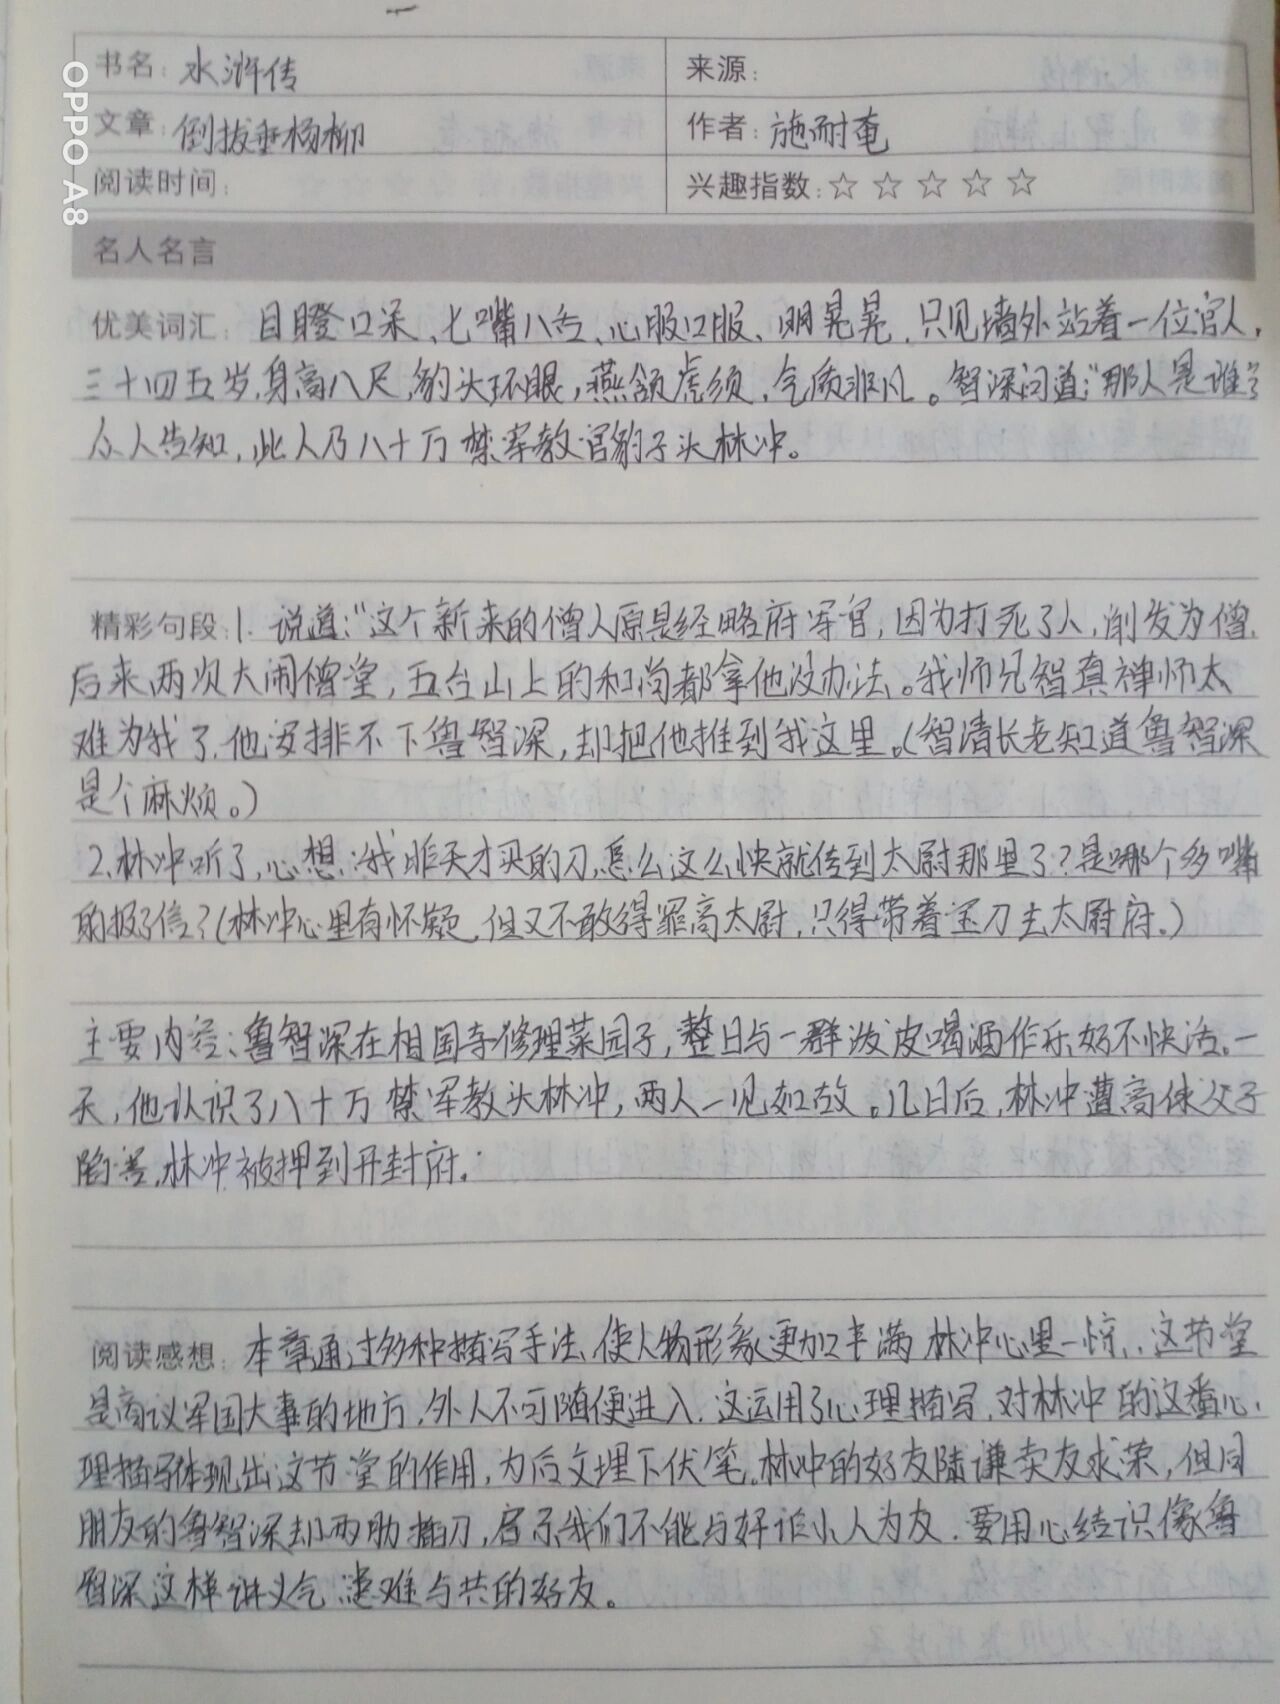 OPPO A8
书名: 水浒传 来源:
文章: 倒拔垂杨柳 作者: 施耐奄
阅读时间: 兴趣指数: ☆☆☆☆☆
名人名言
优美词汇: 目瞪口呆、七嘴八舌、心服口服、明晃晃、只见墙外站着一位官人,
三十四五岁,身高八尺,豹头环眼,燕颔虎须,气质非凡。智深问道:“那人是谁?
众人告知,此人乃八十万禁军教官豹子头林冲。
精彩句段: 1. 说道:“这个新来的僧人原是经略府军官,因为打死了人,削发为僧,
后来两次大闹僧堂,五台山上的和尚都拿他没办法。我师兄智真禅师太
难为我了,他安排不下鲁智深,却把他推到我这里。(智清长老知道鲁智深
是个麻烦。)
2.林冲听了,心想:我昨天才买的刀,怎么这么快就传到太尉那里了?是哪个多嘴
的报了信?(林冲心里有怀疑,但又不敢得罪高太尉,只得带着宝刀去太尉府。)
主要内容:鲁智深在相国寺修理菜园子,整日与一群泼皮喝酒作乐,好不快活。一
天,他认识了八十万禁军教头林冲,两人一见如故。几日后,林冲遭高俅父子
陷害,林冲被押到开封府.
阅读感想: 本章通过多种描写手法,使人物形象更加丰满,林冲心里一惊,..这节堂
是商议军国大事的地方,外人不可随便进入.这运用了心理描写,对林冲的这番心
理描写体现出这节堂的作用,为后文埋下伏笔,林冲的好友陆谦卖友求荣,但同
朋友的鲁智深却两肋插刀,启示我们不能与奸诈小人为友.要用心结识像鲁
智深这样讲义气,患难与共的好友。